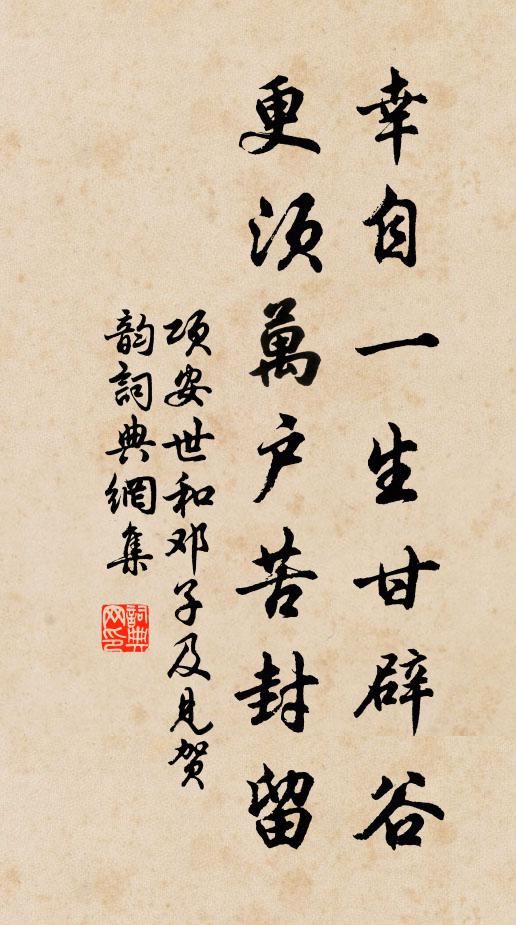 幸自一生甘辟谷
更须萬户苦封留
项安世和邓子及見贺
韵詞典網集
詞典网印